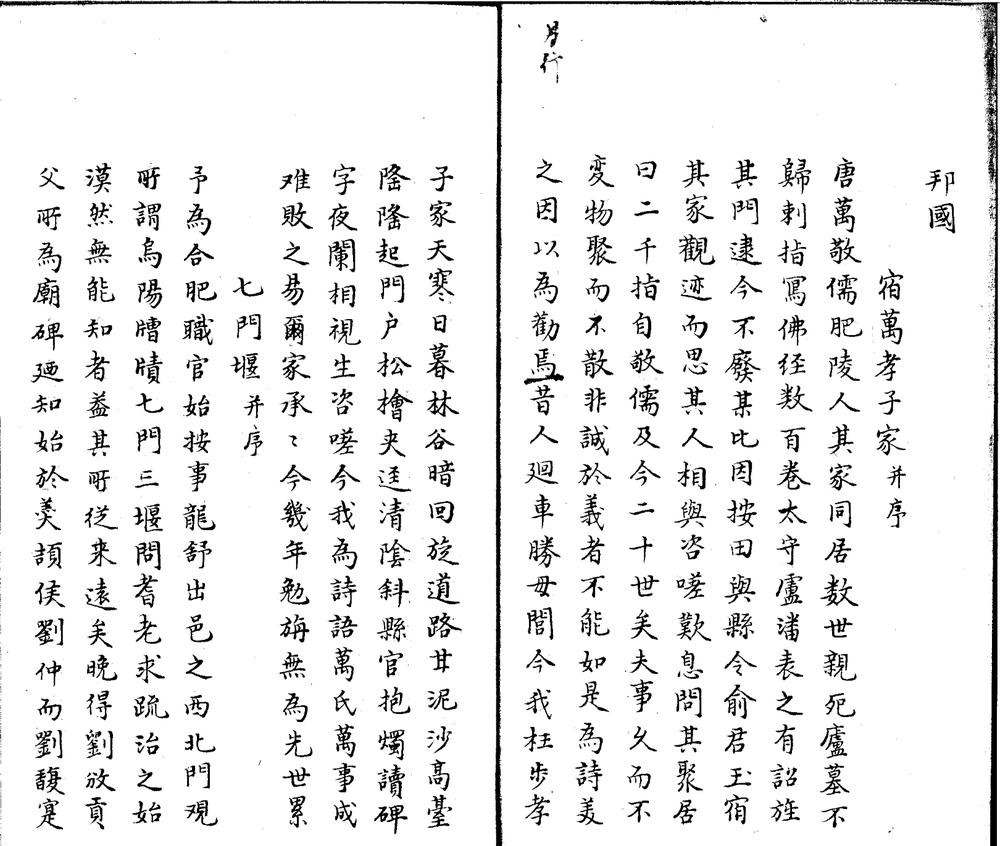 邦國
宿萬孝子家并序
唐萬敬儒肥陵人其家同居数世親死廬墓不
歸刺指寫佛径数百巻太守盧潘表之有詔旌
其門逮今不廢某比因按田與縣令俞君玉宿
其家觀迹而思其人相與咨嗟歎息問其聚居
曰二千指自敬儒及今二十世矣夫事乆而不
変物聚而不散非誠於義者不能如是為詩美
之因以為勸焉昔人廻車勝母閭今我枉歩孝
子家天寒日暮林谷暗回旋道路甘泥沙髙臺
隆隆起門户松檜夾逕清陰斜縣官抱燭讀碑
字夜闌相視生咨嗟今我為詩語萬氏萬事成
难敗之易爾家承〻今幾年勉旃無為先世累
七門堰并序
予為合肥職官始按事龍舒出邑之西北門观
所謂烏陽牐牘七門三堰問耆老求疏治之始
漠然無能知者益其所従来遠矣晚得劉攽貢
父所為廟碑廼知始於羹頡侯劉仲而劉馥寔